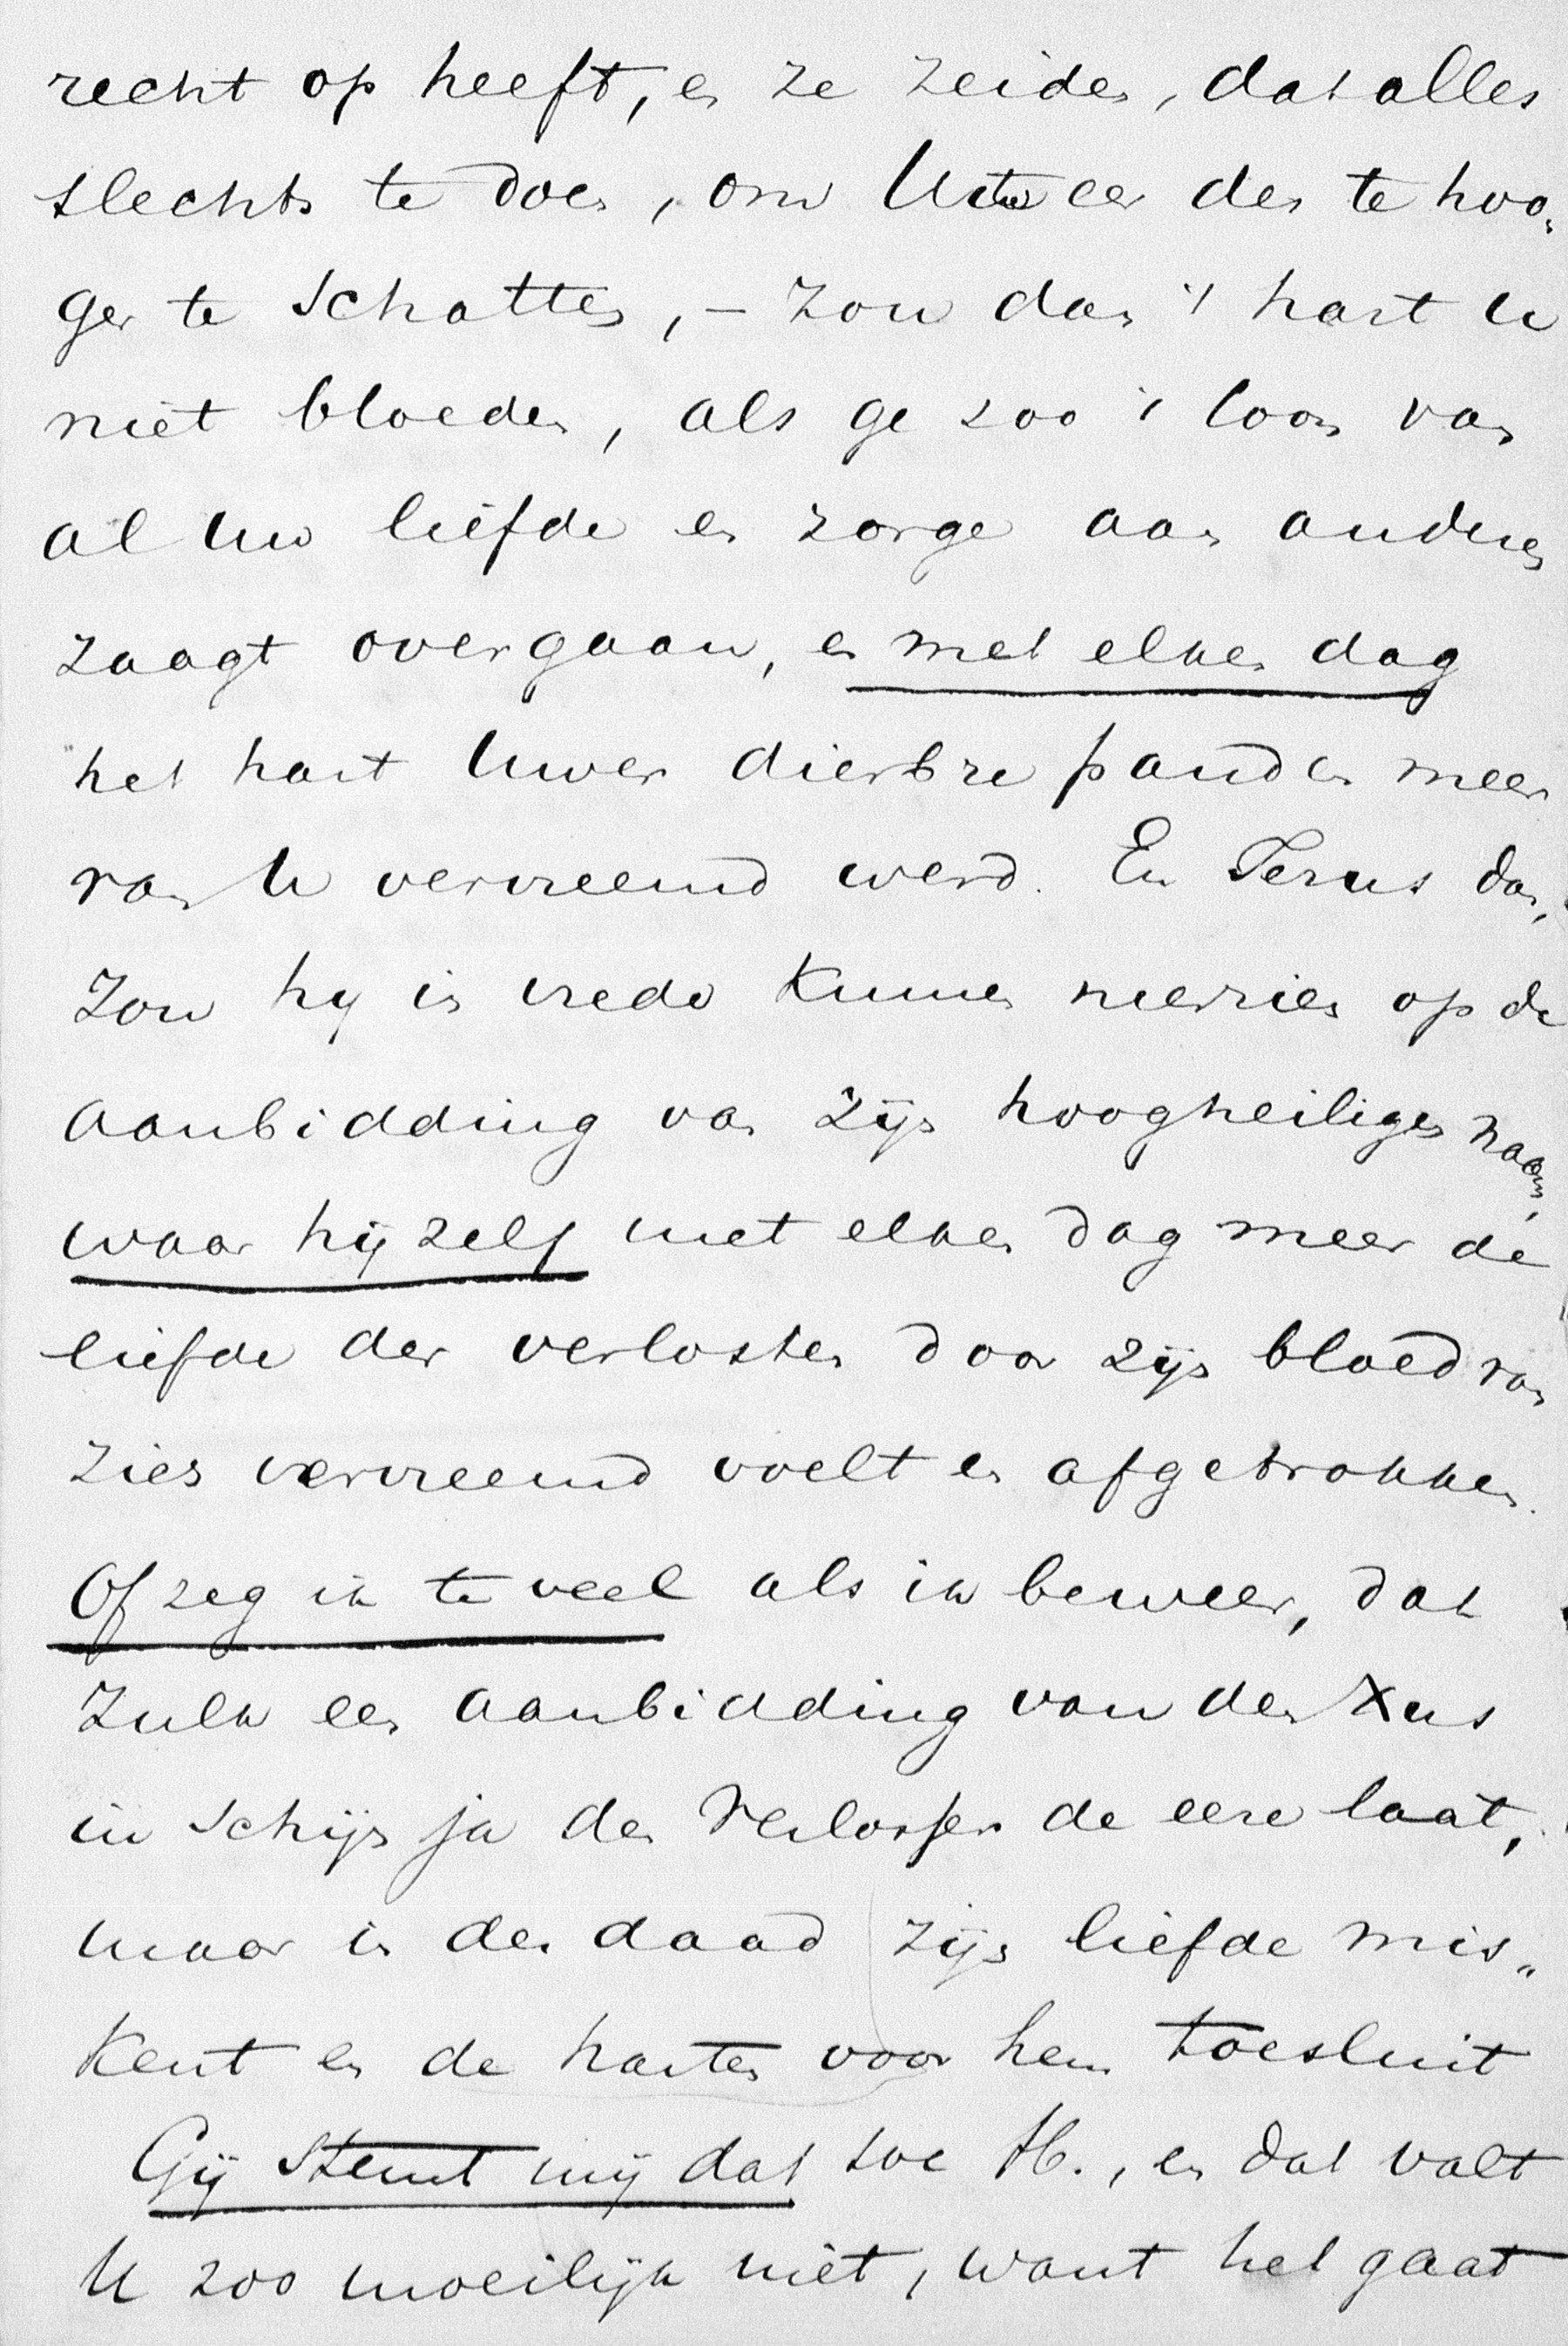 recht op heeft, en ze zeiden, dat alles
slechts te doen, om Uw eer des te hoo„
ger te schatten, – zou dan 't hart U
niet bloeden, als ge zoo 't loon van
al Uw liefde en zorge aan anderen
zaagt overgaan, en met elken dag
het hart Uwer dierbre panden meer
van U vervreemd werd. En Jezus dan,
Zou hij in vrede kunnen neerzien op de
aanbidding van zijn hoogheiligen naam,
waar hij zelf met elken dag meer de
liefde der verlosten door zijn bloed van
zich vervreemd voelt en afgetrokken.
Of zeg ik te veel als ik beweer, dat
Zulk een aanbidding van den Xus
in schijn ja den Verlosser de eere laat,
maar in der daad zijn liefde mis„
kent en de harten voor hem toesluit
Gij stemt mij dat toe H., en dat valt
U zoo moeilijk niet, want het gaat